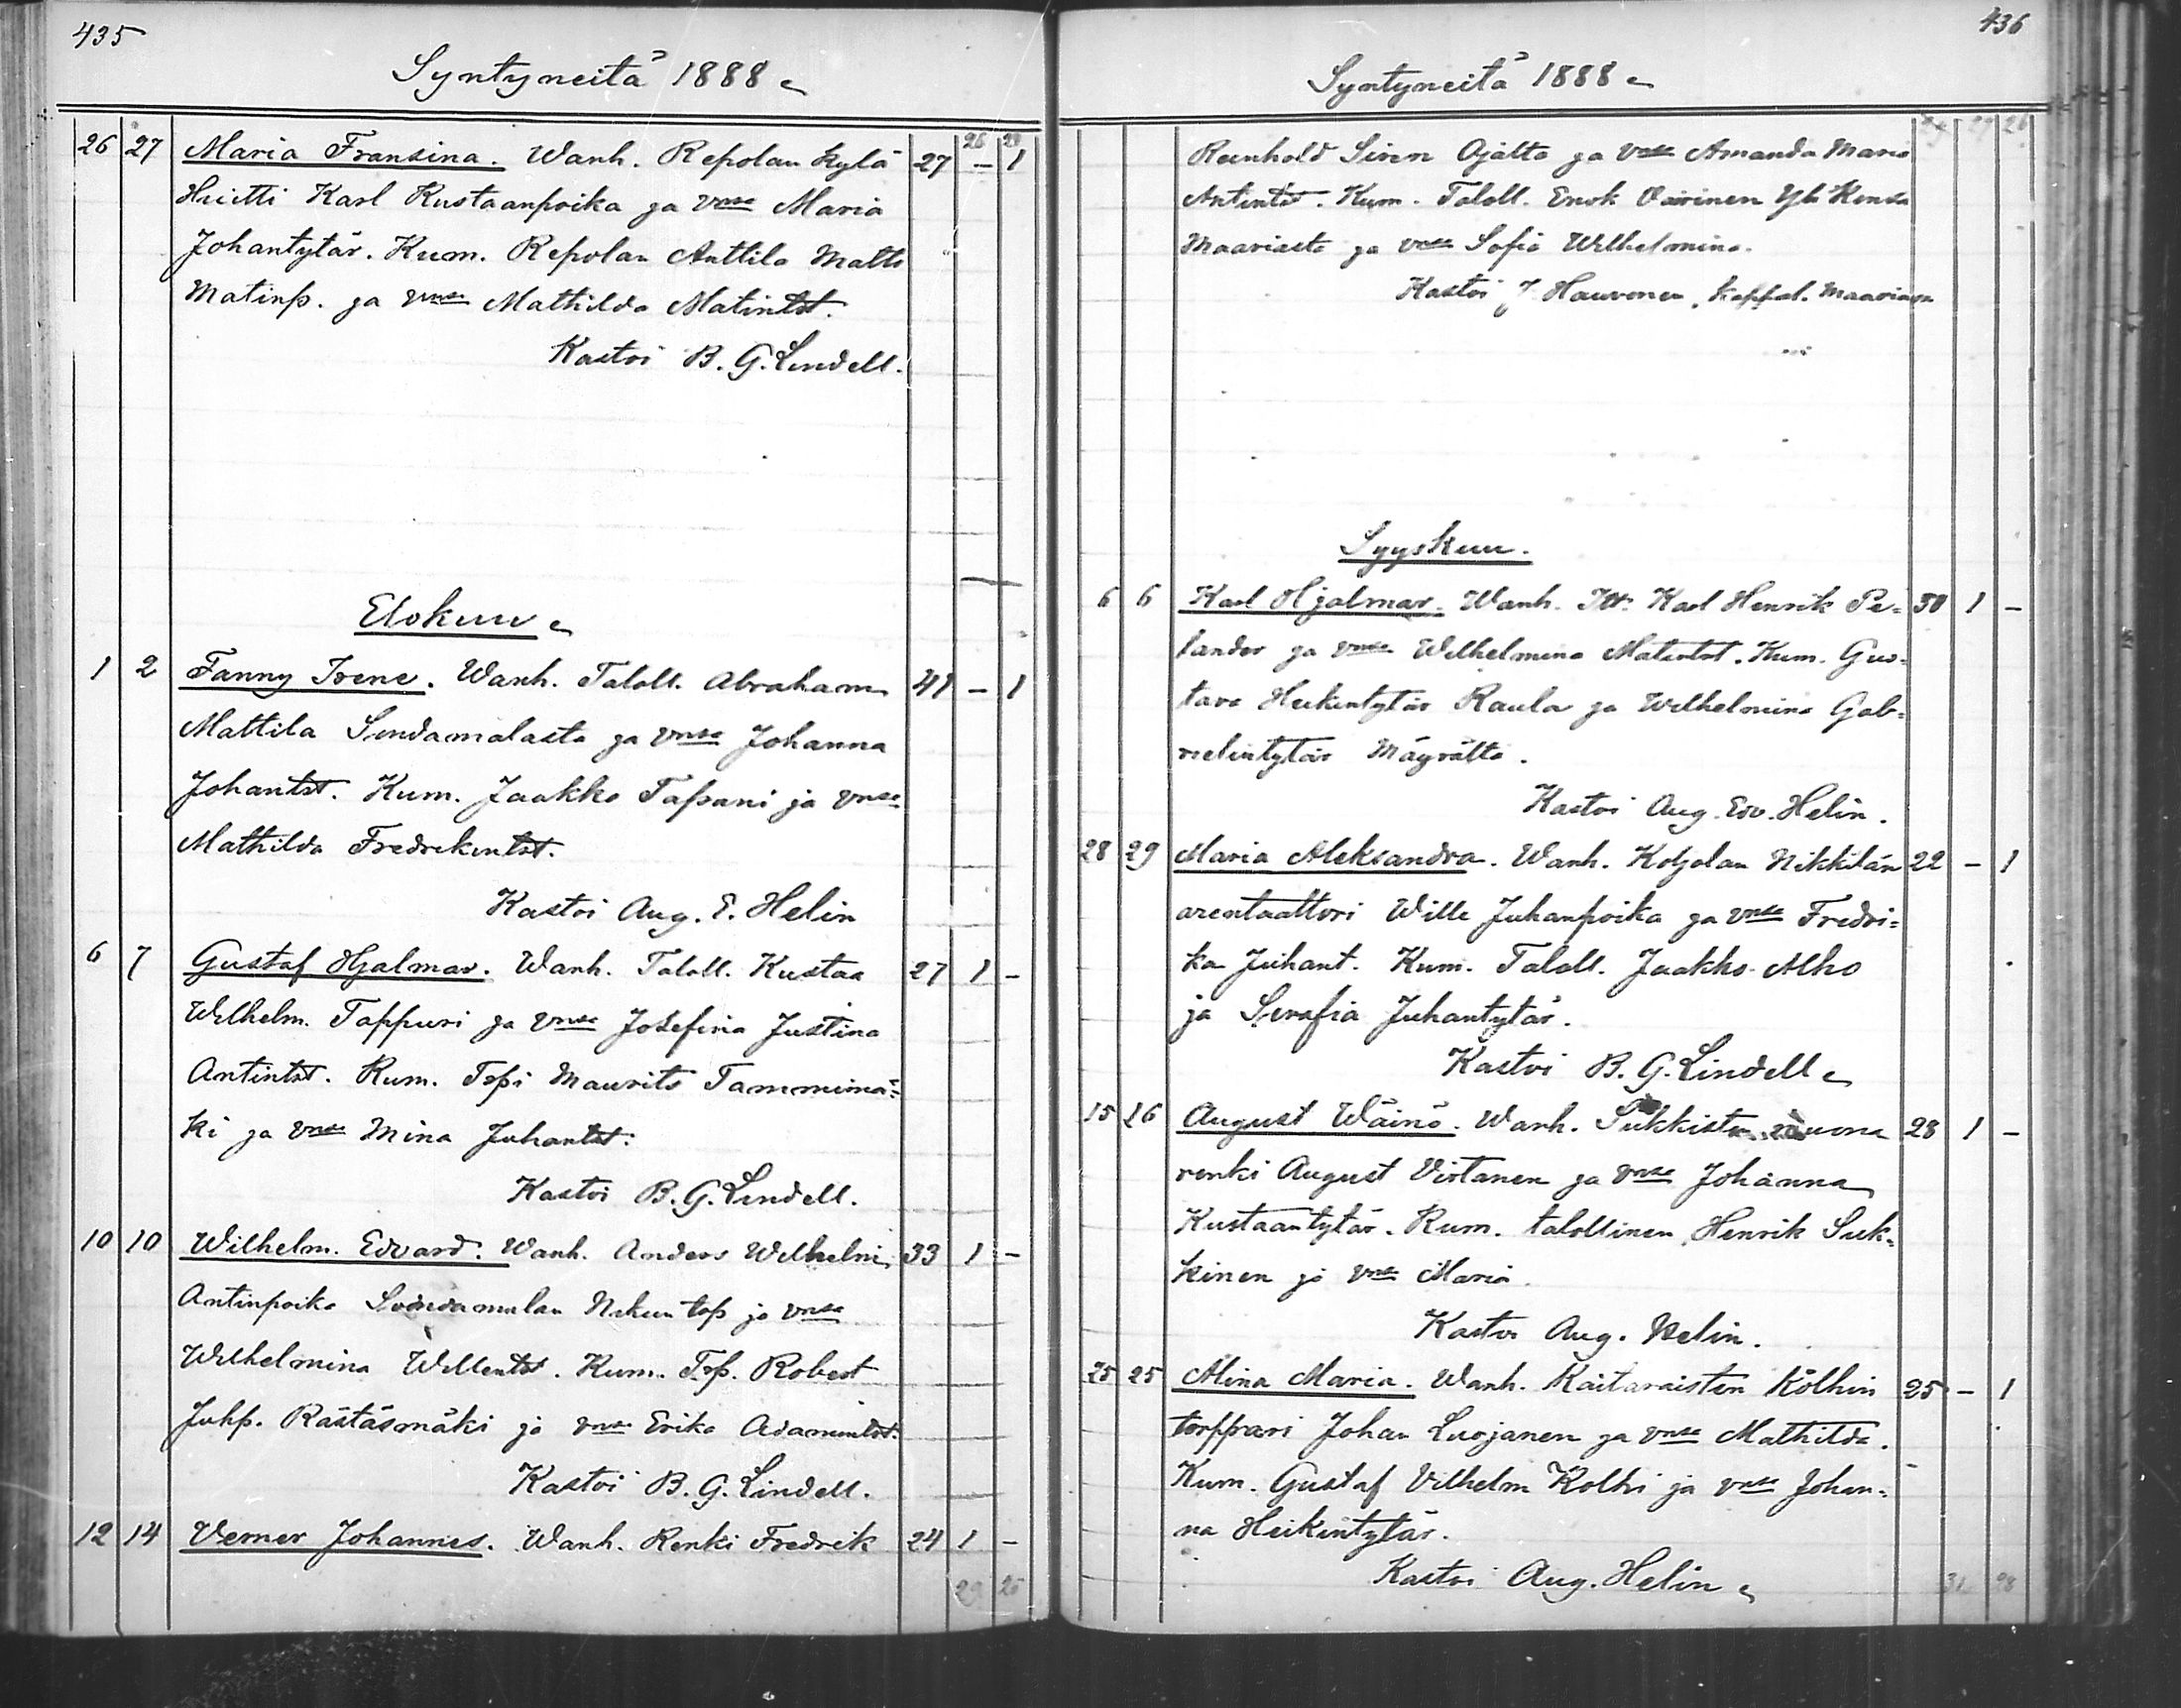 435
Syntyneitä 1888
26 29
26 27 Maria Fransina. Wanh. Repolan kylä 27 — 1
Huitti Karl Kustaanpoika ja vmsa Maria
Johantytär. Kum. Repolan Anttila Matts
Matinp. ja vmsa Mathilda Matintst.
Kastoi B. G. Lindell.
Elokuu
1 2 Fanny Irene. Wanh. Taloll. Abraham 41 — 1
Mattila Sendamalasta ja vmsa Johanna
Johantst. Kum. Jaakko Tapani ja vmsa
Mathilda Fredrikintst.
Kastoi Aug. E. Helin
6 7 Gustaf Hjalmar. Wanh. Taloll. Kustaa 27 1 —
Wilhelm. Tappuri ja vmsa Josefina Justina
Antintst. Kum. Trpi Maurits Tammimä-
ki ja vmsa Mina Juhantst.
Kastoi B. G. Lindell.
10 10 Wilhelm. Edvard. Wanh. Anders Wilhelmi 33 1 —
Antinpoika ja vmsa
Wilhelmina Willentst. Kum. Trp. Robert
Juhp. Rästäsmäki ja vmsa Erika Adamintst.
Kastoi B. G. Lindell.
12 14 Verner Johannes. Wanh. Renki Fredrik 24 1 —
29 25
436
Syntyneitä 1888
Reinhold Siren Ojalta ja vmsa Amanda Maria
Antintst. Kum. Taloll. Enok
Maariasta ja vmsa Sofia Wilhelmina.
Kastoi J. Hauvonen, kappal. Maariassa
Syyskuu.
6 6 Karl Hjalmar. Wanh. Itt. Karl Henrik Pe- 30 1 —
lander ja vmsa Wilhelmina Matintst. Kum. Gus-
tava Heikintytär Raula ja Wilhelmina Gab-
rielintytär Mäyrältä.
Kastoi Aug. Edv. Helin.
28 29 Maria Aleksandra. Wanh. Koljolan Nikkilän 22 — 1
arentaattori Wille Juhanpoika ja vmsa Fredri-
ka Juhant. Kum. Taloll. Jaakko Alho
ja Serafia Juhantytär.
Kastoi B. G. Lindell
15 16 August Wäinö. Wanh. Sukkisten 28 1 —
renki August Virtanen ja vmsa Johanna
Kustaantytär. Kum. talollinen Henrik Suk-
kinen ja vmsa Maria.
Kastoi Aug. Helin.
25 25 Alina Maria. Wanh. Kaitaraisten Kölhin 25 — 1
torppari Johan Luojanen ja vmsa Mathilda.
Kum. Gustaf Vilhelm Kölhi ja vmsa Johan-
na Heikintytär.
Kastoi Aug. Helin
31 28